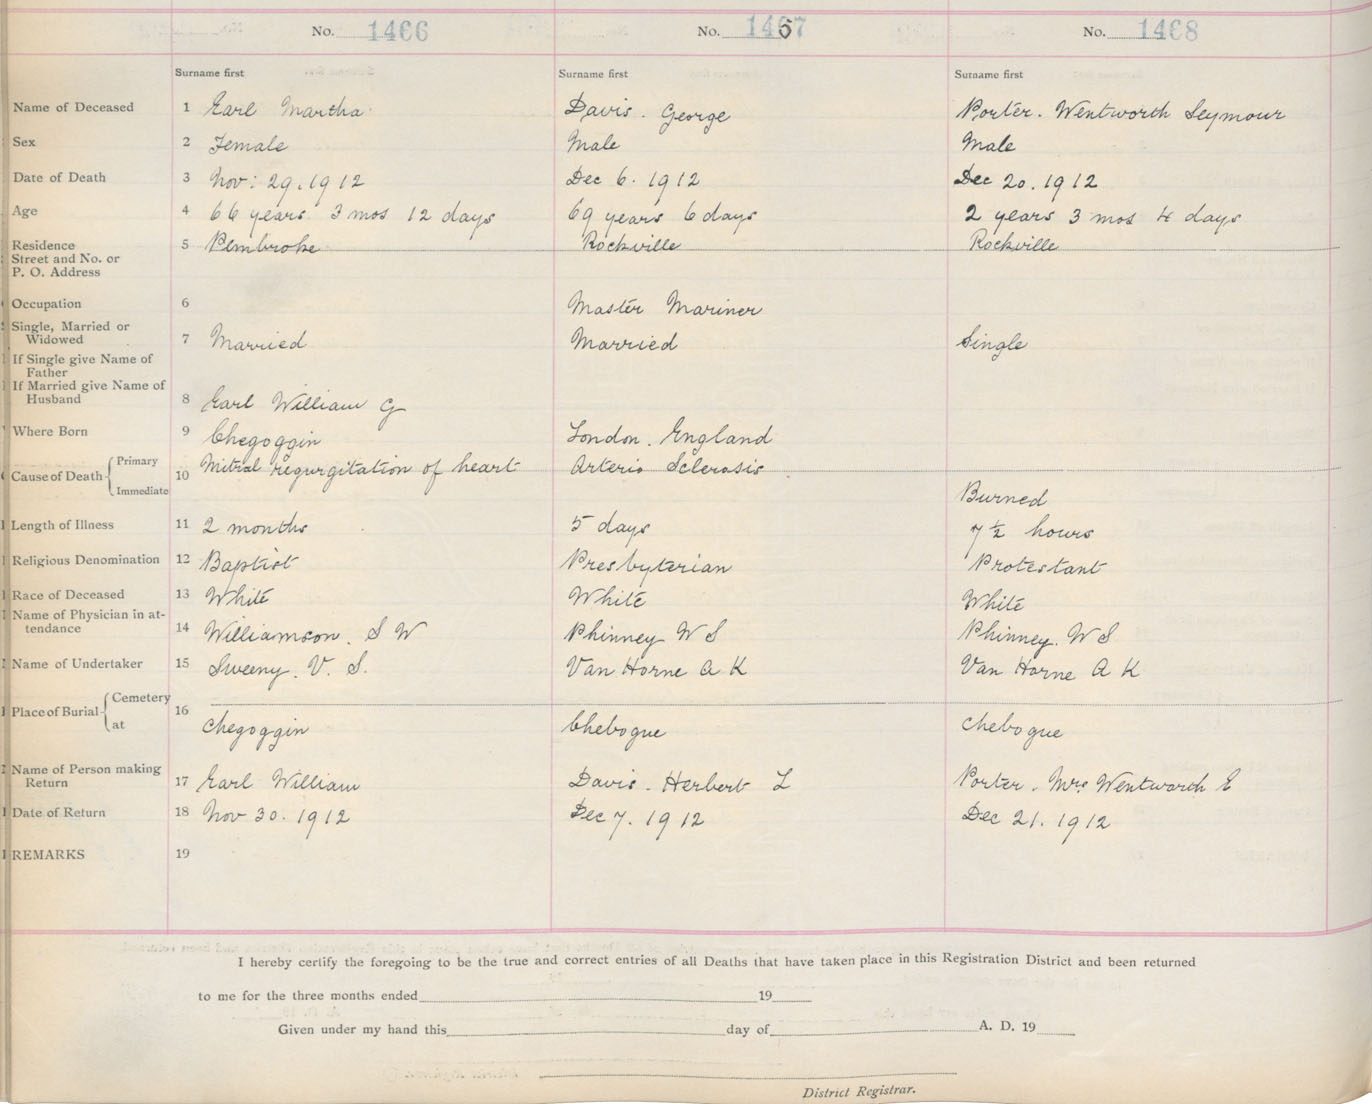 No. 1466 No. 1467 No. 1468
Surname first Surname first Surname first
Name of Deceased 1 Earl Martha Davis. George Porter. Wentworth Seymour
Sex 2 Female Male Male
Date of Death 3 Nov: 29. 1912 Dec 6. 1912 Dec 20. 1912
Age 4 66 years 3 mos 12 days 69 years 6 days 2 years 3 mos 4 days
Residence 5 Pembroke Rockville Rockville
Street and No. or
P. O. Address
Occupation 6 Master Mariner
Single, Married or
Widowed 7 Married Married Single
If Single give Name of
Father
If Married give Name of
Husband 8 Earl William G
Where Born 9 Chegoggin London. England
Cause of Death Primary 10 Mitral regurgitation of heart Arterio Sclerosis
Immediate Burned
Length of Illness 11 2 months 5 days 7 ½ hours
Religious Denomination 12 Baptist Presbyterian Protestant
Race of Deceased 13 White White White
Name of Physician in at-
tendance 14 Williamson. S W Phinney W S Phinney. W S
Name of Undertaker 15 Sweeny. V. S. Van Horne A K Van Horne A K
Place of Burial Cemetery 16
at Chegoggin Chebogue Chebogue
Name of Person making
Return 17 Earl William Davis. Herbert L Porter. Mrs Wentworth E
Date of Return 18 Nov 30. 1912 Dec 7. 1912 Dec 21. 1912
REMARKS 19
I hereby certify the foregoing to be the true and correct entries of all Deaths that have taken place in this Registration District and been returned
to me for the three months ended 19
Given under my hand this day of A. D. 19
District Registrar.